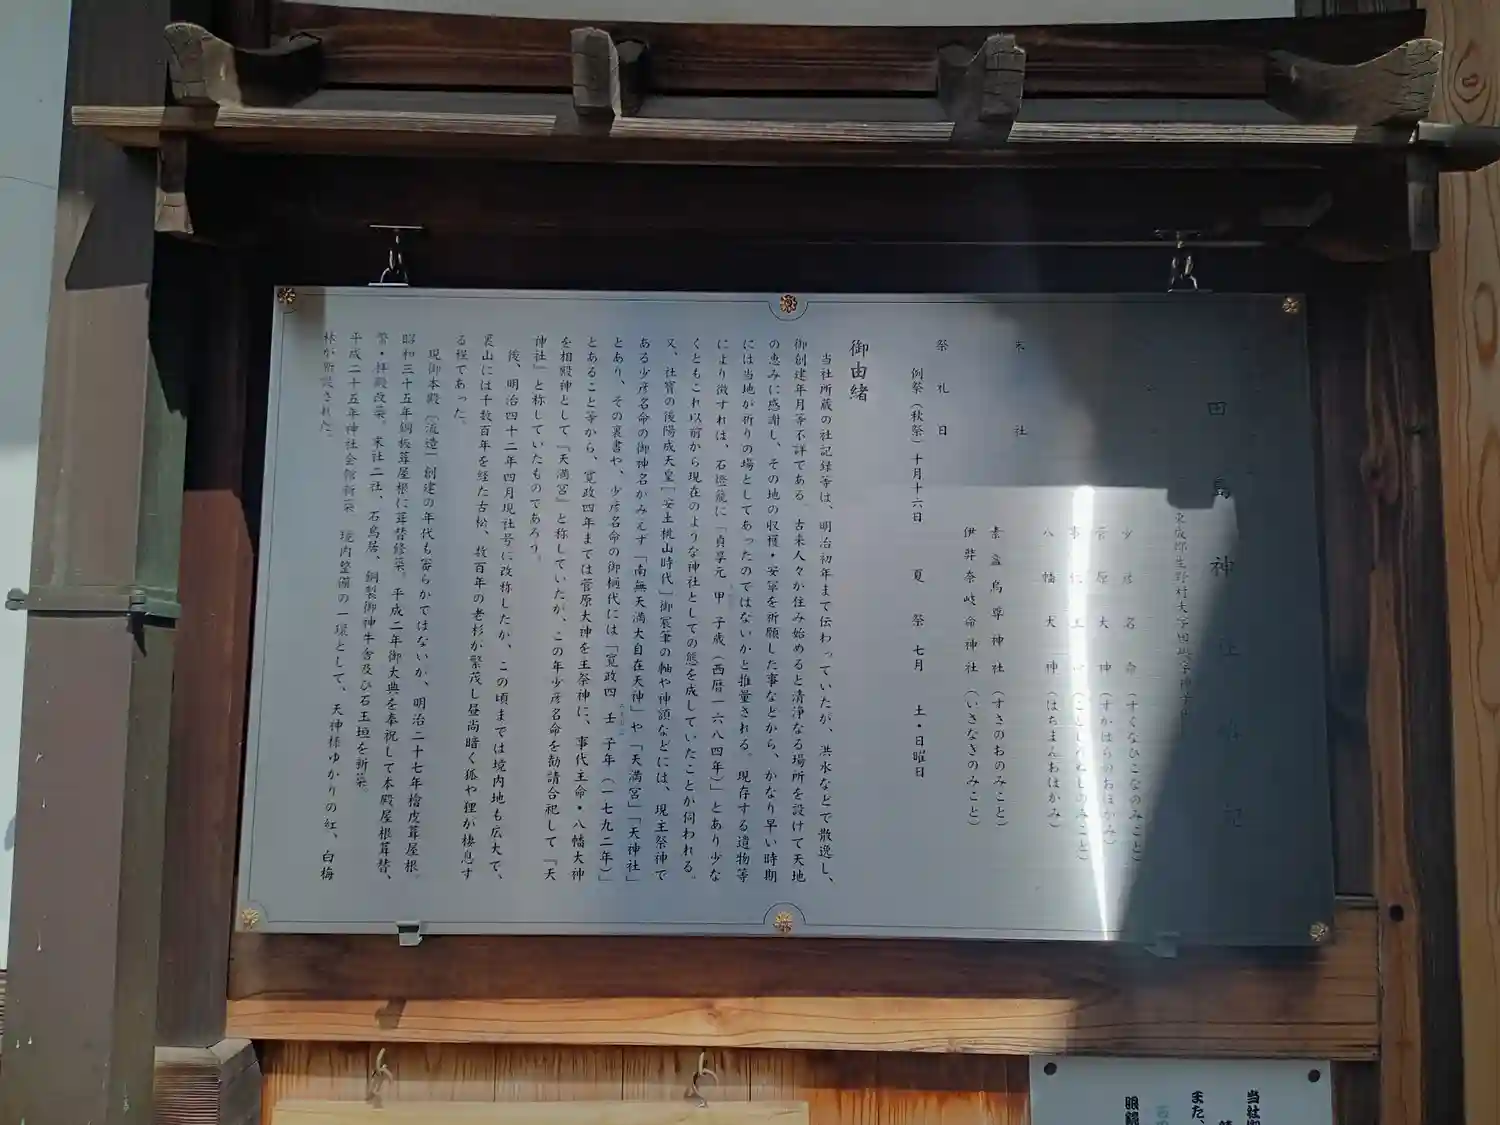 田島神社
東成郡生野村大字田島字神子
少彦名命（すくなひこなのみこと）
菅原大神（すがはらのおほかみ）
事代主命（ことしろぬしのみこと）
八幡大神（はちまんおほかみ）
末社
素盞烏尊神社（すさのおのみこと）
伊弉奈岐命神社（いさなぎのみこと）
祭礼日
例祭（秋祭）十月十六日　夏祭　七月　土・日曜日
御由緒
当社所蔵の社記録等は、明治初年まで伝わっていたが、洪水などで散逸し、
御創建年月等不詳である。古来人々が住み始めると清浄なる場所を設けて天地
の恵みに感謝し、その地の収穫・安寧を祈願した事などから、かなり早い時期
には当地が祈りの場としてあったのではないかと推量される。現存する遺物等
により徴すれば、石燈籠に「貞享元　甲　子歳（西暦一六八四年）」とあり少な
くともこれ以前から現在のような神社としての態を成していたことが伺われる。
又、社寶の後陽成天皇「安土桃山時代」御宸筆の軸や神額などには、現主祭神で
ある少彦名命の御神名がみえず「南無天満大自在天神」や「天満宮」「天神社」
とあり、その裏書や、少彦名命の御柄代には「寛政四　壬　子年（一七九二年）」
とあること等から、寛政四年までは菅原大神を主祭神に、事代主命・八幡大神
を相殿神として『天満宮』と称していたが、この年少彦名命を勧請合祀して『天
神社』と称していたものであろう。
後、明治四十二年四月現社号に改称したが、この頃までは境内地も広大で、
裏山には千数百年を経た古松、数百年の老杉が繁茂し昼尚暗く狐や狸が棲息す
る程であった。
現御本殿〔流造〕創建の年代も審らかではないが、明治二十七年檜皮葺屋根。
昭和三十五年銅板葺屋根に葺替修築。平成二年御大典を奉祝して本殿屋根葺替、
幣・拝殿改築。末社二社、石鳥居、銅製御神牛舎及び石玉垣を新築
平成二十五年神社会館新築　境内整備の一環として、天神様ゆかりの紅、白梅
林が新設された。
当社
また、